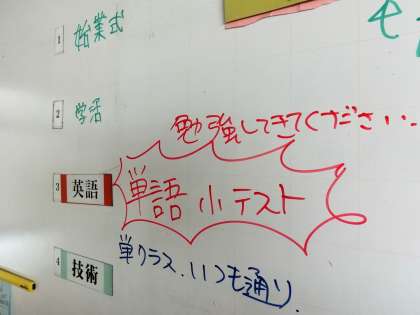 1 始業式
2 学活
勉強してきてください
3 英語 単語 小テスト
4 技術 単クラス、いつも通り